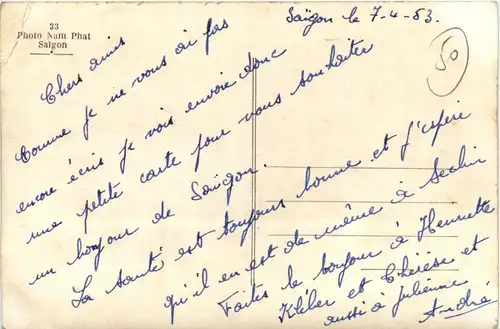 33
Photo Nam Phat
Saïgon
50
Saïgon le 7-4-53.
Chers amis
Comme je ne vous ai pas
encore écris je vais envoie donc
une petite carte pour vous souhaiter
un bonjour de Saïgon.
La santé est toujours bonne et j'espère
qu'il en est de même à Seclin
Faites le bonjour à Henriette
Kléber et Thérèse et
aussi à Julienne
André